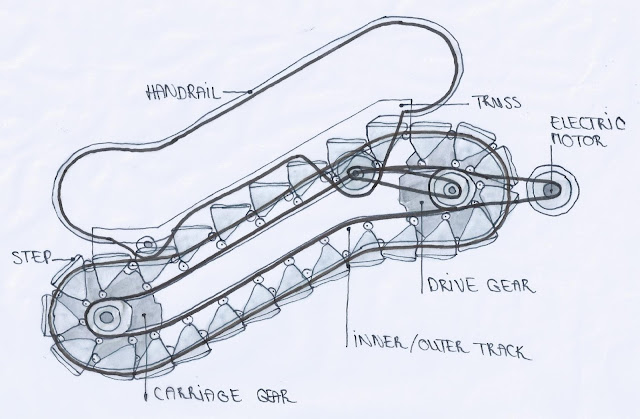 HANDRAIL
TRUSS
ELECTRIC
MOTOR
STEP
DRIVE GEAR
INNER/OUTER TRACK
CARRIAGE GEAR